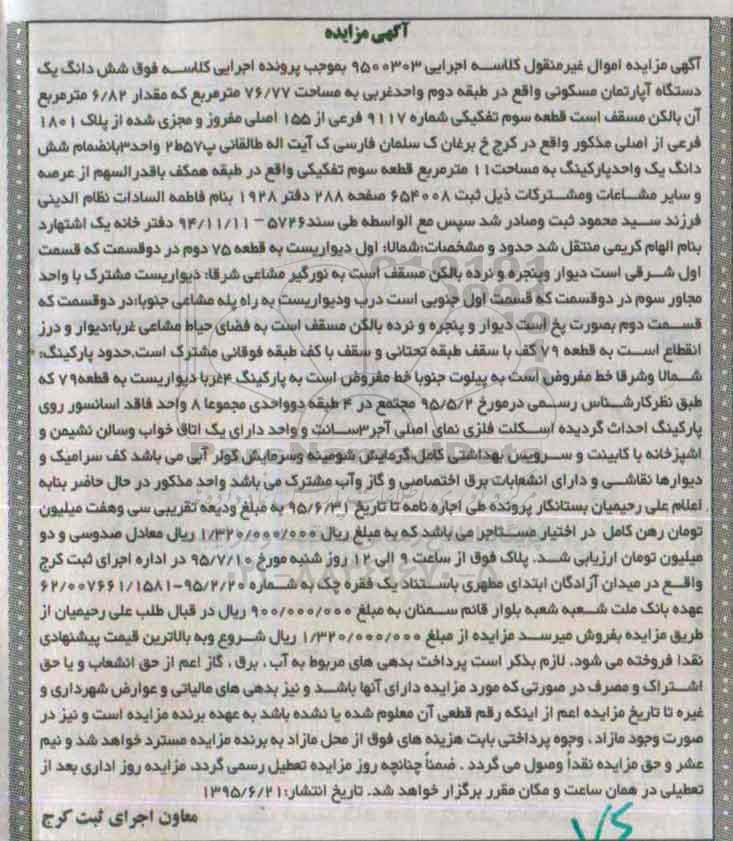 آگهی مزایده
آگهی مزایده اموال غیرمنقول کلاسه اجرایی ۹۵۰۰۳۰۳ بموجب پرونده اجرایی کلاسه فوق شش دانگ یک
دستگاه آپارتمان مسکونی واقع در طبقه دوم واحدغربی به مساحت ۷۶/۷۷ مترمربع که مقدار ۶/۸۲ مترمربع
آن بالکن مسقف است قطعه سوم تفکیکی شماره ۹۱۱۷ فرعی از ۱۵۵ اصلی مفروز و مجزی شده از پلاک ۱۸۰۱
فرعی از اصلی مذکور واقع در کرج خ برغان ک سلمان فارسی ک آیت اله طالقانی پ۵۷ط۲ واحد۳بانضمام شش
دانگ یک واحدپارکینگ به مساحت۱۱ مترمربع قطعه سوم تفکیکی واقع در طبقه همکف باقدرالسهم از عرصه
و سایر مشاعات ومشترکات ذیل ثبت ۶۵۴۰۰۸ صفحه ۲۸۸ دفتر ۱۹۲۸ بنام فاطمه السادات نظام الدینی
فرزند سید محمود ثبت وصادر شد سپس مع الواسطه طی سند۵۷۲۶ – ۹۴/۱۱/۱۱ دفتر خانه یک اشتهارد
بنام الهام کریمی منتقل شد حدود و مشخصات:شمالا: اول دیواریست به قطعه ۷۵ دوم در دوقسمت که قسمت
اول شرقی است دیوار وپنجره و نرده بالکن مسقف است به نورگیر مشاعی شرقا: دیواریست مشترک با واحد
مجاور سوم در دوقسمت که قسمت اول جنوبی است درب ودیواریست به راه پله مشاعی جنوبا:در دوقسمت که
قسمت دوم بصورت پخ است دیوار و پنجره و نرده بالکن مسقف است به فضای حیاط مشاعی غربا:دیوار و درز
انقطاع است به قطعه ۷۹ کف با سقف طبقه تحتانی و سقف با کف طبقه فوقانی مشترک است.حدود پارکینگ:
شمالا وشرقا خط مفروض است به پیلوت جنوبا خط مفروض است به پارکینگ ۴غربا دیواریست به قطعه۷۹ که
طبق نظرکارشناس رسمی درمورخ ۹۵/۵/۲ مجتمع در ۴ طبقه دوواحدی مجموعا ۸ واحد فاقد اسانسور روی
پارکینگ احداث گردیده اسکلت فلزی نمای اصلی آجر۳سانت و واحد دارای یک اتاق خواب وسالن نشیمن و
اشپزخانه با کابینت و سرویس بهداشتی کامل،گرمایش شومینه وسرمایش کولر آبی می باشد کف سرامیک و
دیوارها نقاشی و دارای انشعابات برق اختصاصی و گاز وآب مشترک می باشد واحد مذکور در حال حاضر بنابه
اعلام علی رحیمیان بستانکار پرونده طی اجاره نامه تا تاریخ ۹۵/۶/۳۱ به مبلغ ودیعه تقریبی سی وهفت میلیون
تومان رهن کامل در اختیار مستاجر می باشد که به مبلغ ریال ۱/۳۲۰/۰۰۰/۰۰۰ ریال معادل صدوسی و دو
میلیون تومان ارزیابی شد. پلاک فوق از ساعت ۹ الی ۱۲ روز شنبه مورخ ۹۵/۷/۱۰ در اداره اجرای ثبت کرج
واقع در میدان آزادگان ابتدای مطهری باستناد یک فقره چک به شماره ۹۵/۲/۲۰-۶۲/۰۰۷۶۶۱/۱۵۸۱
عهده بانک ملت شعبه شعبه بلوار قائم سمنان به مبلغ ۹۰۰/۰۰۰/۰۰۰ ریال در قبال طلب علی رحیمیان از
طریق مزایده بفروش میرسد مزایده از مبلغ ۱/۳۲۰/۰۰۰/۰۰۰ ریال شروع وبه بالاترین قیمت پیشنهادی
نقدا فروخته می شود. لازم بذکر است پرداخت بدهی های مربوط به آب ، برق ، گاز اعم از حق انشعاب و یا حق
اشتراک و مصرف در صورتی که مورد مزایده دارای آنها باشد و نیز بدهی های مالیاتی و عوارض شهرداری و
غیره تا تاریخ مزایده اعم از اینکه رقم قطعی آن معلوم شده یا نشده باشد به عهده برنده مزایده است و نیز در
صورت وجود مازاد ، وجوه پرداختی بابت هزینه های فوق از محل مازاد به برنده مزایده مسترد خواهد شد و نیم
عشر و حق مزایده نقداً وصول می گردد . ضمناً چنانچه روز مزایده تعطیل رسمی گردد، مزایده روز اداری بعد از
تعطیلی در همان ساعت و مکان مقرر برگزار خواهد شد. تاریخ انتشار:۱۳۹۵/۶/۲۱
معاون اجرای ثبت کرج